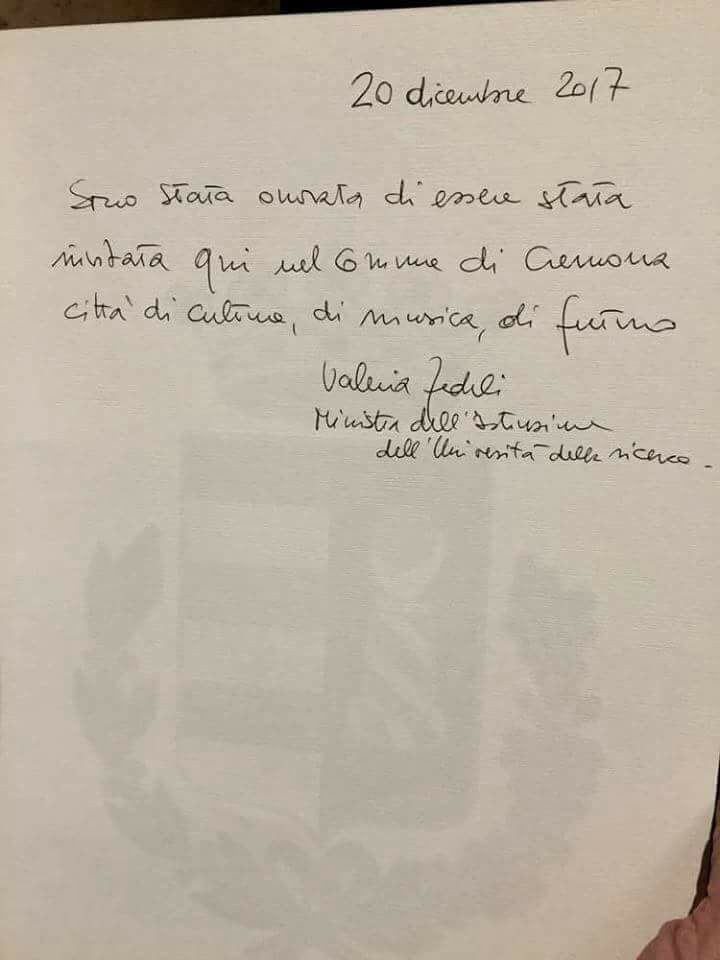 20 dicembre 2017
Sono stata onorata di essere stata
invitata qui nel Comune di Cremona
città di cultura, di musica, di futuro
Valeria Fedeli
Ministra dell'Istruzione
dell'Università della ricerca